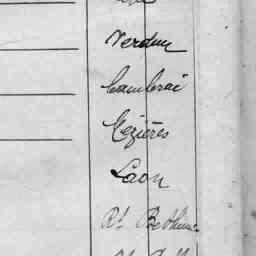 Verdun
Cambrai
Mezières
Laon
Rt Bethune